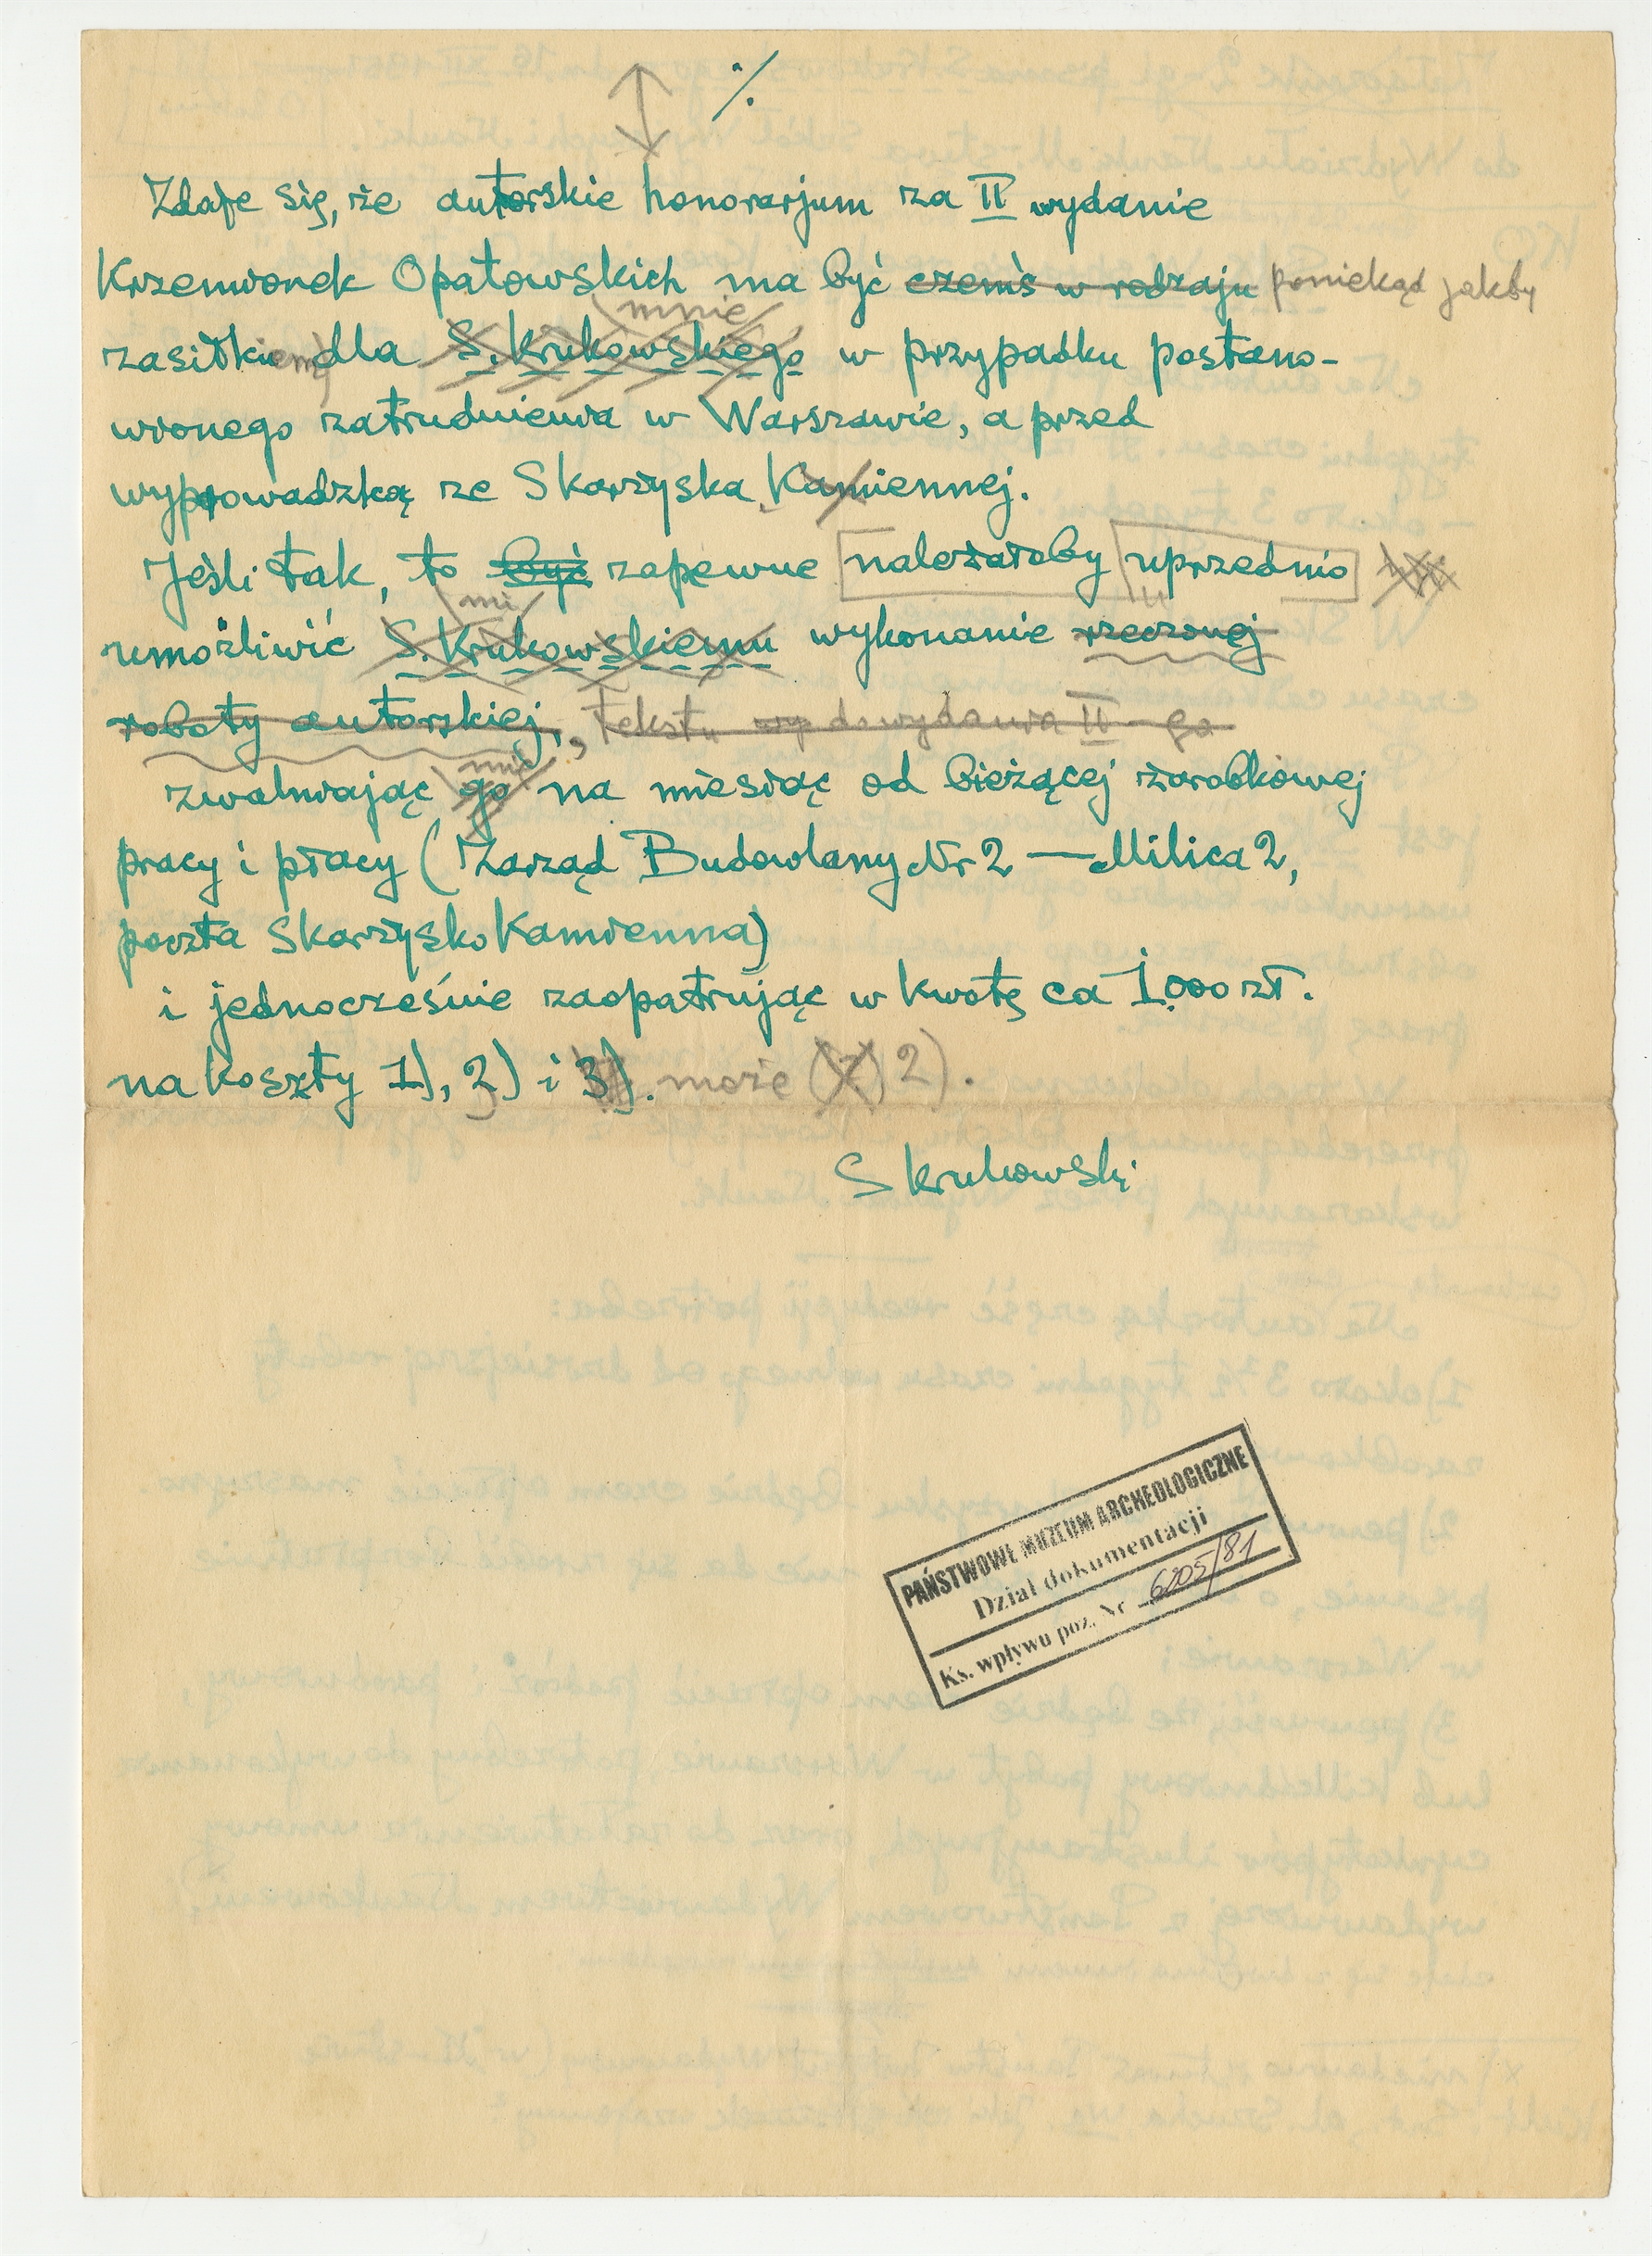 ./.
Zdaje się, że autorskie honorarjum za II wydanie
Krzemionek Opatowskich ma być czemś w rodzaju poniekąd jakby
zasiłkiem dla S. Krukowskiego mnie w przypadku postano-
wionego zatrudnienia w Warszawie, a przed
wyprowadzką ze Skarżyska Kamiennej.
Jeśli tak, to być zapewne należałoby uprzednio
umożliwić S. Krukowskiemu mi wykonanie rzeczonej
roboty autorskiej, tekstu do wydania II-go
zwalniając go mnie na miesiąc od bieżącej zarobkowej
pracy i płacy (Zarząd Budowlany Nr 2 — Milica 2,
poczta Skarżysko Kamienna)
i jednocześnie zaopatrując w kwotę ca 1.000 zł.
na koszty 1), 2) i 3). może 2).
S Krukowski
PAŃSTWOWE MUZEUM ARCHEOLOGICZNE
Dział dokumentacji
Ks. wpływu poz. Nr 6205/81